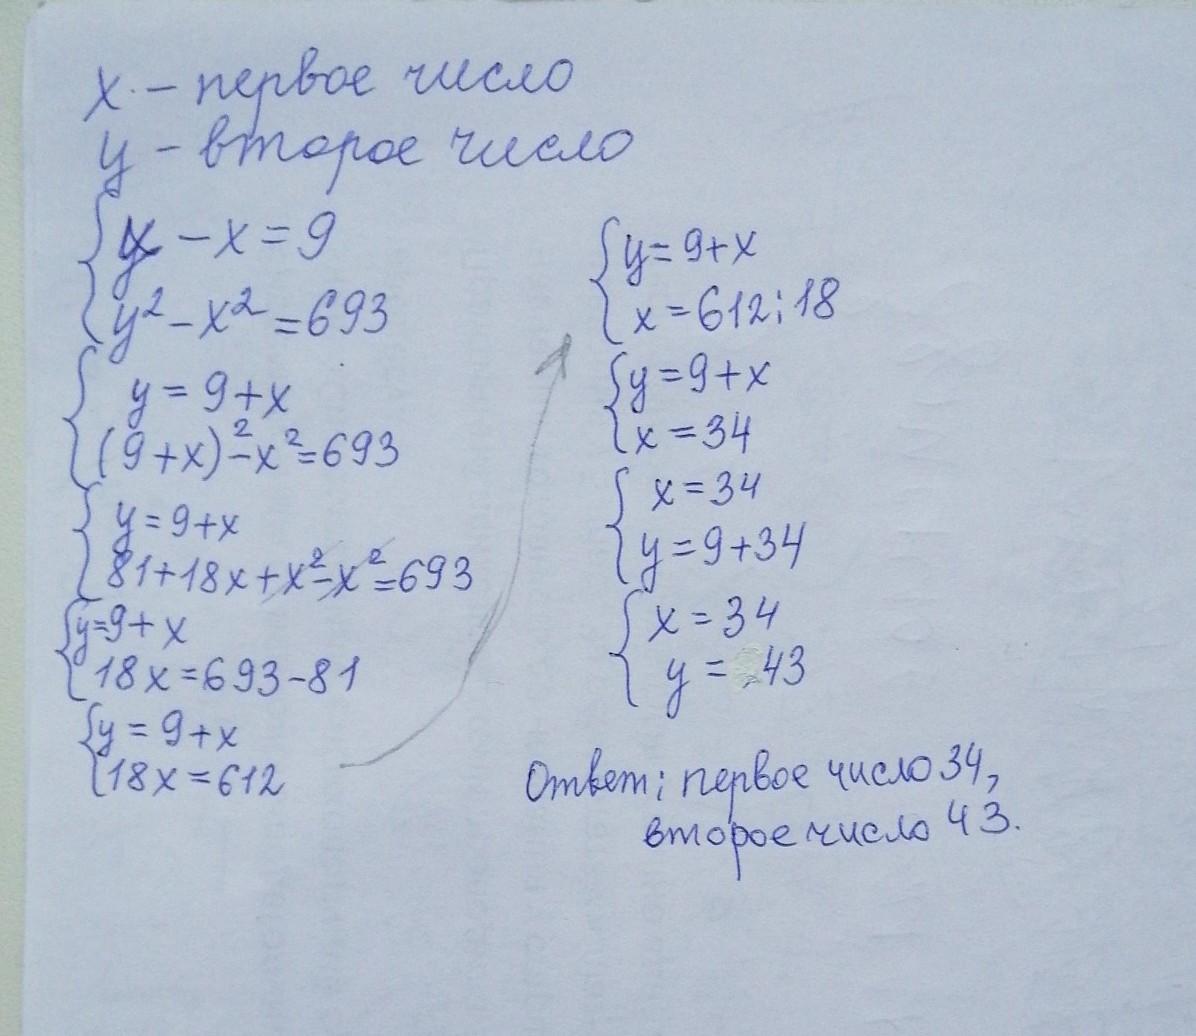 x - первое число
y - второе число
y - x = 9
y² - x² = 693
y = 9 + x
(9 + x)² - x² = 693
y = 9 + x
81 + 18x + x² - x² = 693
y = 9 + x
18x = 693 - 81
y = 9 + x
18x = 612
y = 9 + x
x = 612 : 18
y = 9 + x
x = 34
x = 34
y = 9 + 34
x = 34
y = 43
Ответ: первое число 34,
второе число 43.